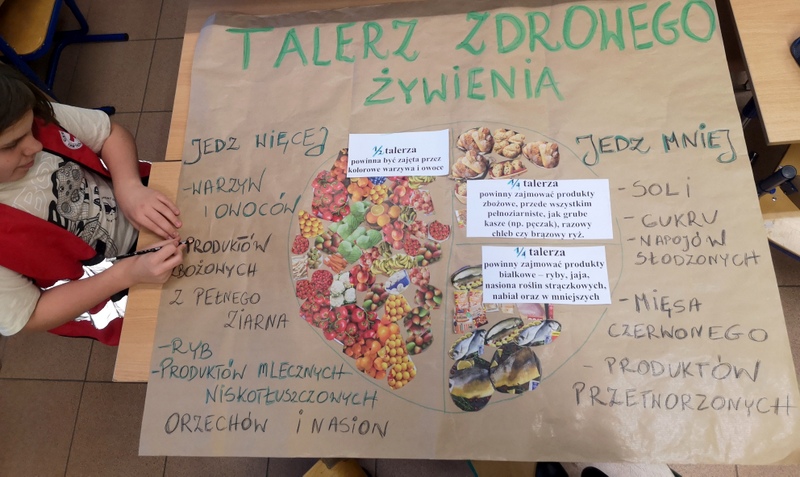 TALERZ ZDROWEGO
ŻYWIENIA
JEDZ WIĘCEJ
-WARZYW
I OWOCÓW
PRODUKTÓW
ZBOŻOWYCH
Z PEŁNEGO
ZIARNA
-RYB
-PRODUKTÓW MLECZNYCH
NISKOTŁUSZCZOWYCH
ORZECHÓW I NASION
½ talerza
powinna być zajęta przez
kolorowe warzywa i owoce
¼ talerza
powinny zajmować produkty
zbożowe, przede wszystkim
pełnoziarniste, jak grube
kasze (np. pęczak), razowy
chleb czy brązowy ryż.
¼ talerza
powinny zajmować produkty
białkowe – ryby, jaja,
nasiona roślin strączkowych,
nabiał oraz w mniejszych
JEDZ MNIEJ
- SOLI
- CUKRU
- NAPOJÓW
SŁODZONYCH
- MIĘSA
CZERWONEGO
- PRODUKTÓW
PRZETWORZONYCH